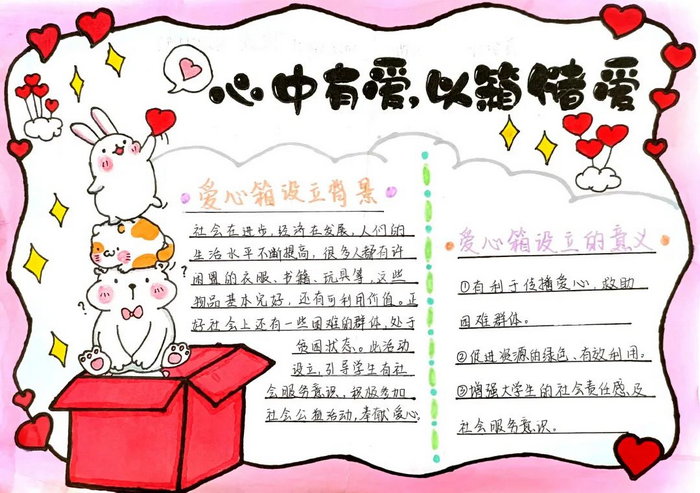 心中有爱，以箱传爱
爱心箱设立背景
社会在进步，经济在发展，人们的
生活水平不断提高，很多人都有许
闲置的衣服、书籍、玩具等，这些
物品基本完好，还有可利用价值。正
好社会上还有一些困难的群体，处于
贫困状态。此活动
设立，引导学生有社
会服务意识，积极参加
社会公益活动，奉献爱心
爱心箱设立的意义
①有利于传播爱心，救助
困难群体。
②促进资源的绿色、有效利用。
③增强大学生的社会责任感及
社会服务意识。
?
?
?